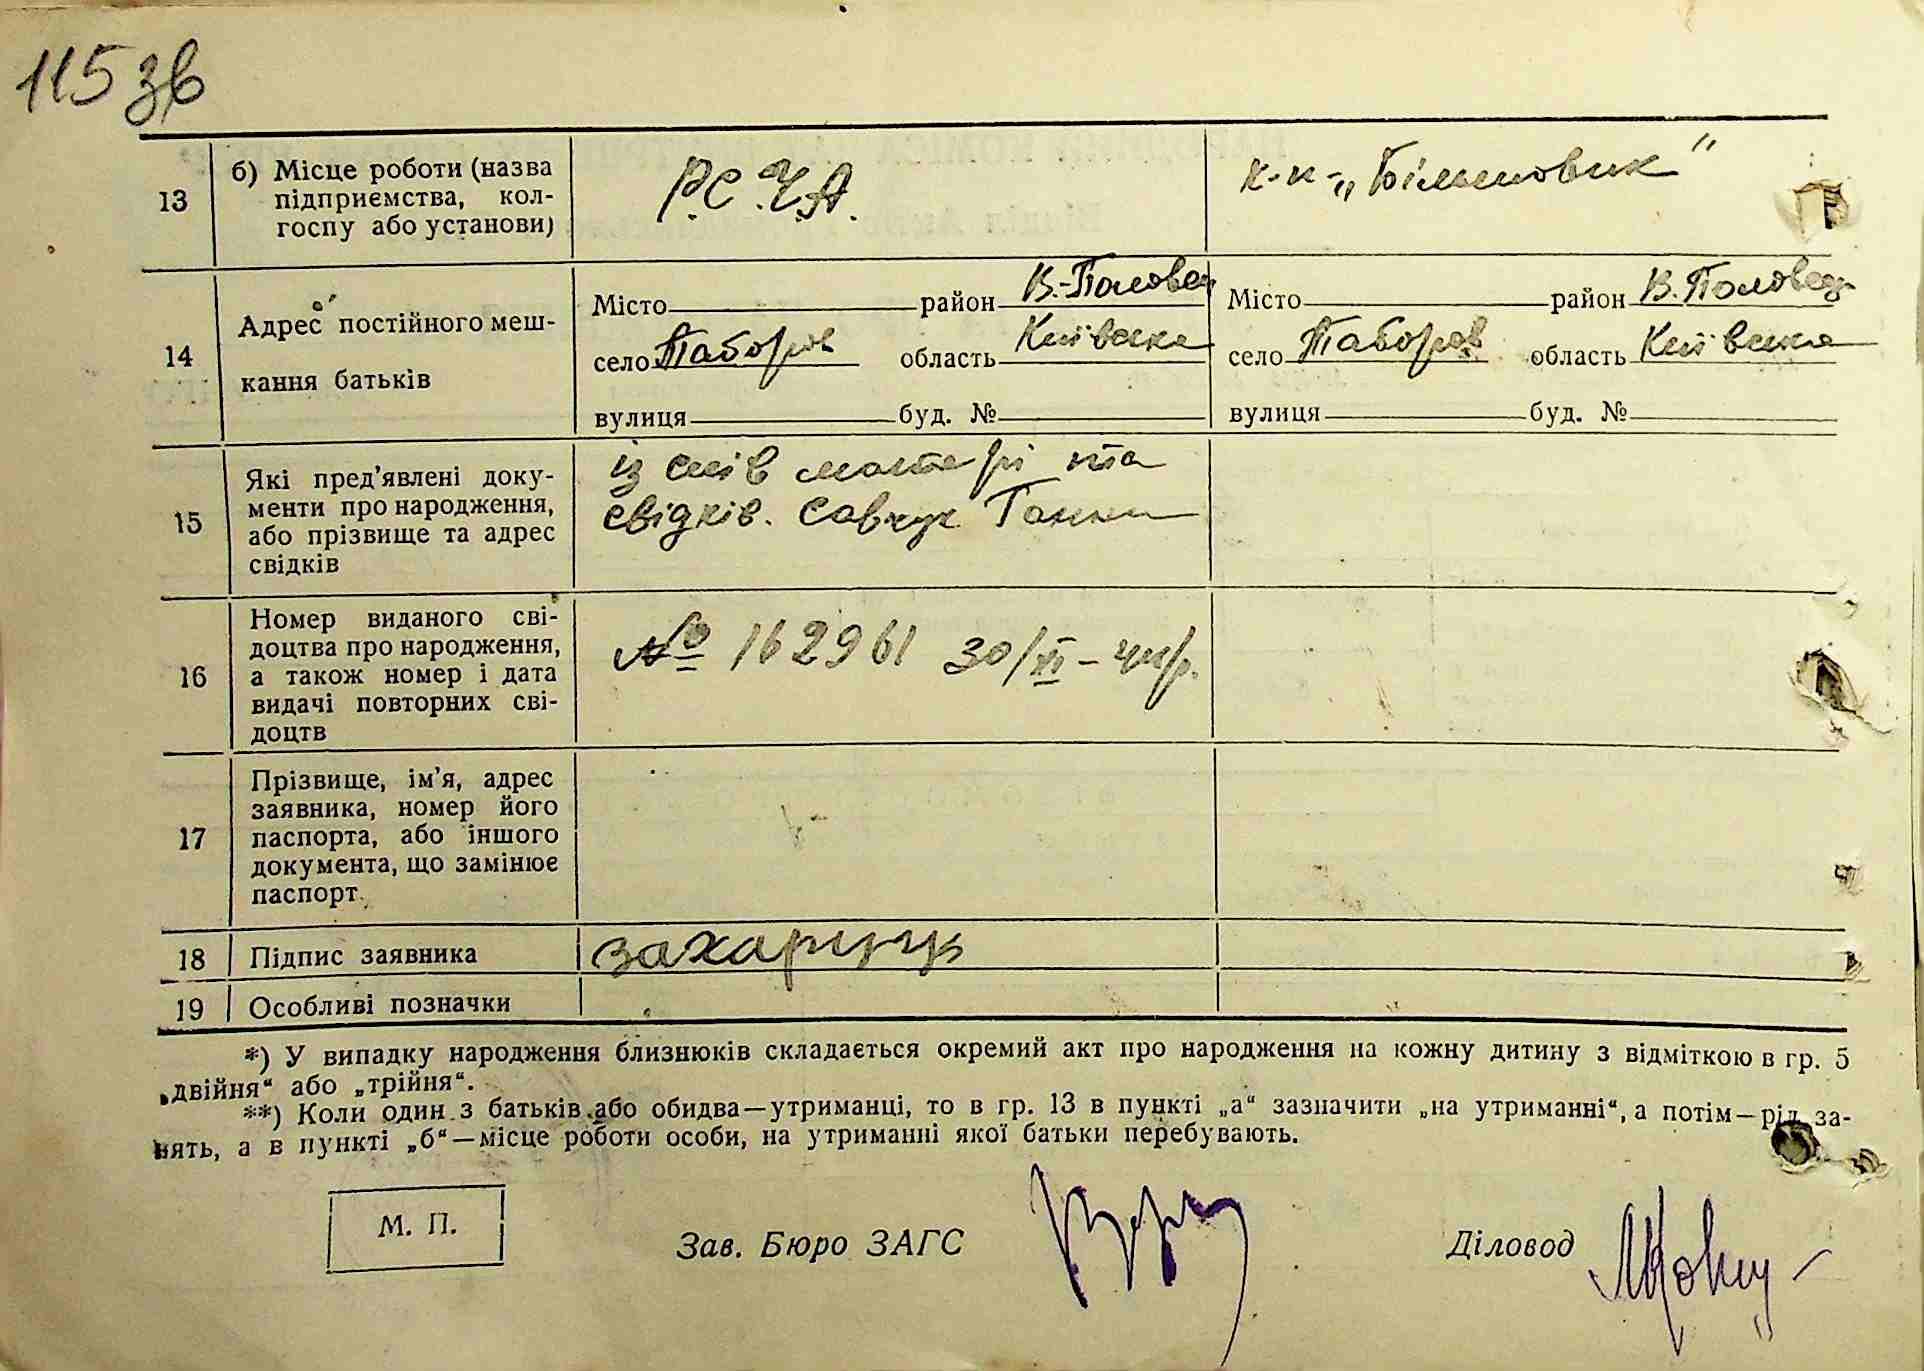 115 зв
13 б) Місце роботи (назва Р.С.Ч.А. к-п- „Більшовик"
підприємства, кол-
госпу або установи)
14 Адрес постійного меш-
кання батьків
Місто район В.-Половец Місто район В. Половец
село Таборов область Київська село Таборов область Київська
вулиця буд. № вулиця буд. №
15 Які пред'явлені доку-
менти про народження,
або прізвище та адрес
свідків
із слів матері та
свідків. Савчук Ганни
16 Номер виданого сві-
доцтва про народження,
а також номер і дата
видачі повторних сві-
доцтв
№ 162961 30/XI-
17 Прізвище, ім'я, адрес
заявника, номер його
паспорта, або іншого
документа, що замінює
паспорт.
18 Підпис заявника захарчук
19 Особливі позначки
*) У випадку народження близнюків складається окремий акт про народження на кожну дитину з відміткою в гр. 5
„двійня" або „трійня".
**) Коли один з батьків або обидва—утриманці, то в гр. 13 в пункті „а" зазначити „на утриманні", а потім—рід за-
нять, а в пункті „б"—місце роботи особи, на утриманні якої батьки перебувають.
М. П. Зав. Бюро ЗАГС Діловод